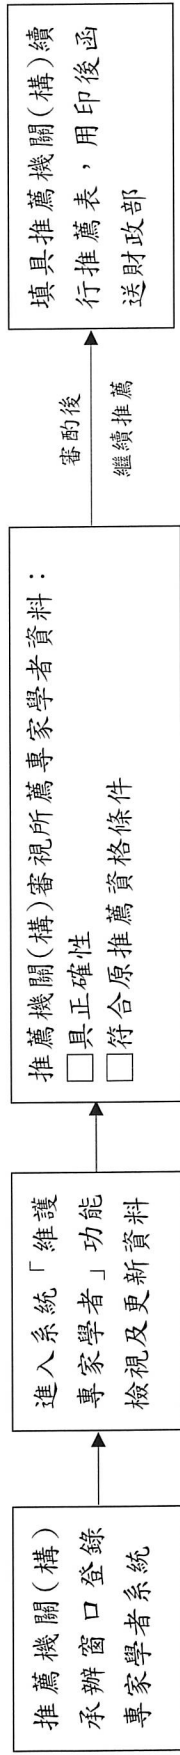 推薦機關(構)
承辦窗口登錄
專家學者系統
進入系統「維護
專家學者」功能
檢視及更新資料
推薦機關(構)審視所薦專家學者資料：
□具正確性
□符合原推薦資格條件
審酌後
繼續推薦
填具推薦機關(構)續
行推薦表，用印後函
送財政部